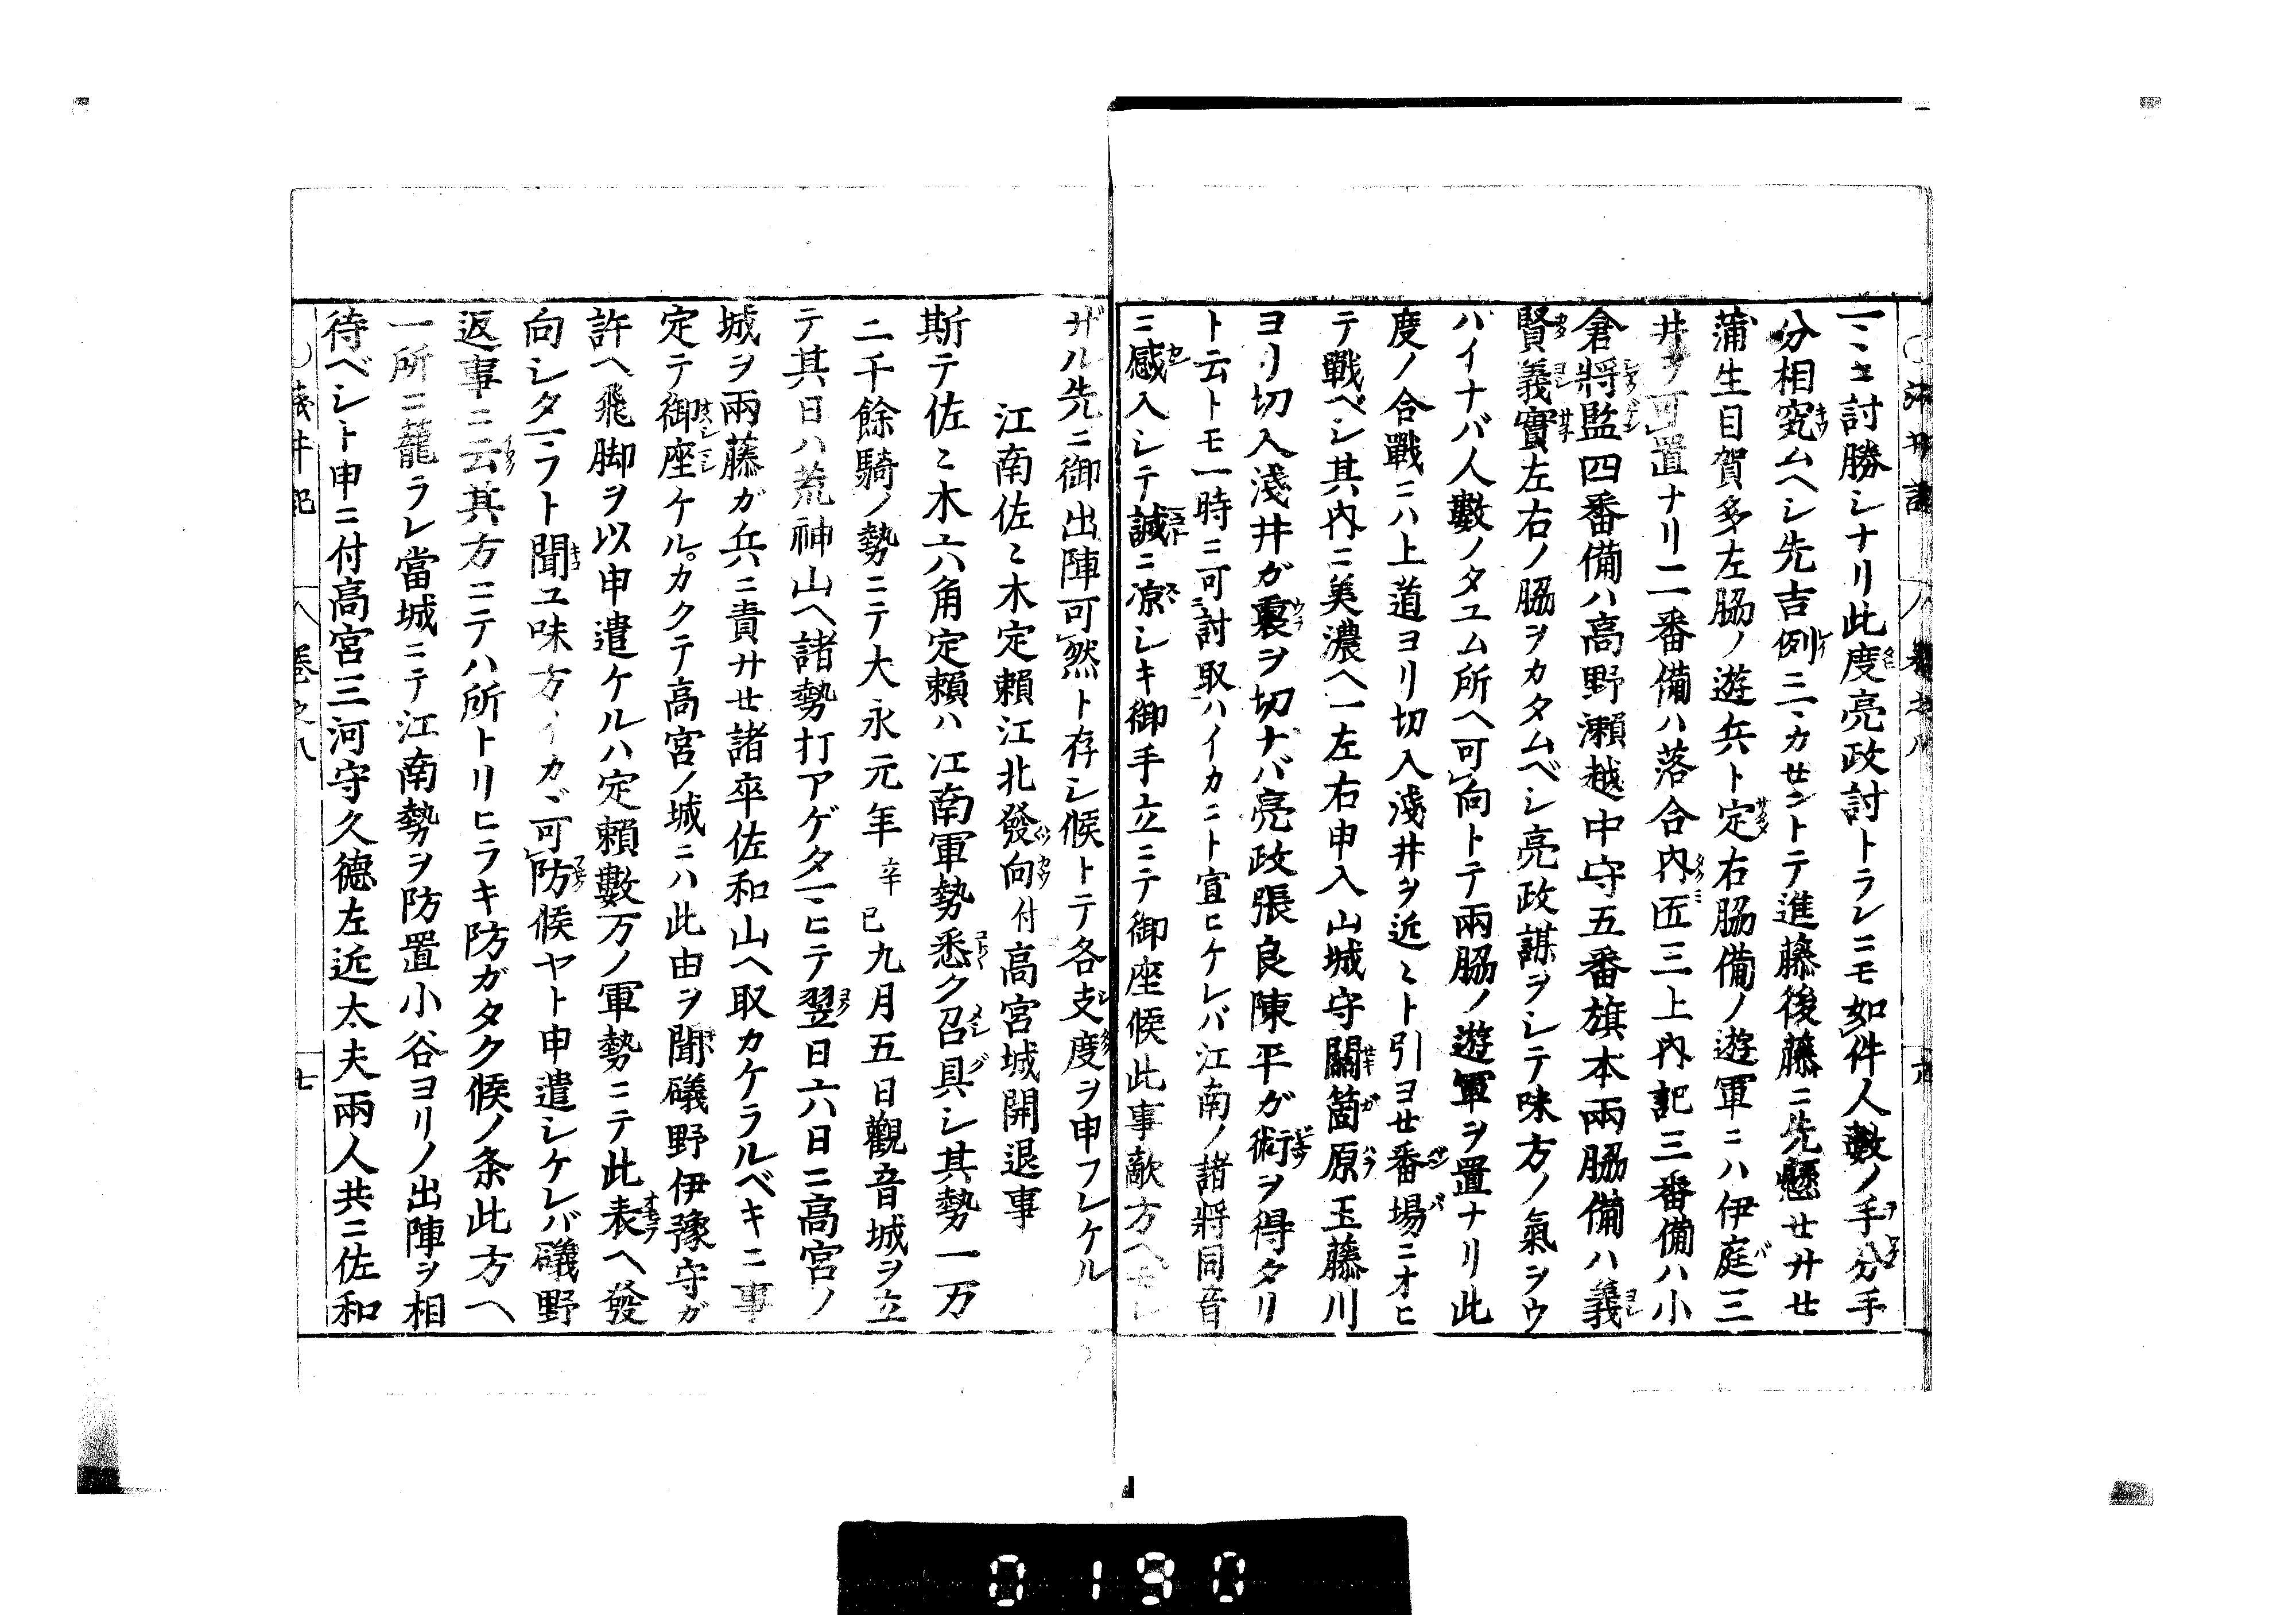 一〻ニ討勝シナリ此度亮政討トラレニモ如件人數ノ手分手
分相究ムヘシ先吉例ニ、カセントテ進藤後藤ニ先懸セサセ
蒲生目賀多左脇ノ遊兵ト定右脇備ノ遊軍ニハ伊庭三
井ヲ可置ナリ二番備ハ落合内匠三上内記三番備ハ小
倉將監四番備ハ高野瀬越中守五番旗本兩脇備ハ義
賢義實左右ノ脇ヲカタムベシ亮政謀ヲシテ味方ノ氣ヲウ
バイナバ人數ノタユム所ヘ可向トテ兩脇ノ遊軍ヲ置ナリ此
度ノ合戰ニハ上道ヨリ切入淺井ヲ近〻ト引ヨセ番場ニオヒ
テ戰ベシ其内ニ美濃ヘ一左右申入山城守關箇原玉藤川
ヨリ切入淺井ガ裏ヲ切ナバ亮政張良陳平ガ術ヲ得タリ
ト云トモ一時ニ可討取ハイカニト宣ヒケレバ江南ノ諸將同音
ニ感入シテ誠ニ凉シキ御手立ニテ御座候此事敵方ヘモレ
ザル先ニ御出陣可然ト存シ候トテ各支度ヲ申フレケル
江南佐〻木定頼江北發向付高宮城開退事
斯テ佐〻木六角定頼ハ江南軍勢悉ク召具シ其勢一万
二千餘騎ノ勢ニテ大永元年辛巳九月五日觀音城ヲ立
テ其日ハ荒神山ヘ諸勢打アゲタマヒテ翌日六日ニ高宮ノ
城ヲ兩藤ガ兵ニ責サセ諸卒佐和山ヘ取カケラルベキニ事
定テ御座ケル。カクテ高宮ノ城ニハ此由ヲ聞礒野伊豫守ガ
許ヘ飛脚ヲ以申遣ケルハ定頼數万ノ軍勢ニテ此表ヘ發
向シタマフト聞ユ味方イカヾ可防候ヤト申遣シケレバ礒野
返事ニ云其方ニテハ所トリヒラキ防ガタク候ノ条此方ヘ
一所ニ籠ラレ當城ニテ江南勢ヲ防置小谷ヨリノ出陣ヲ相
待ベシト申ニ付高宮三河守久德左近太夫兩人共ニ佐和
淺井記 卷之八 七